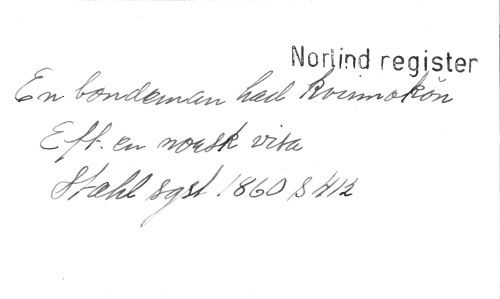 Norlind register
En bondeman had kvinnokön
Eft. en norsk visa
Stahl sgst 1860 s 412